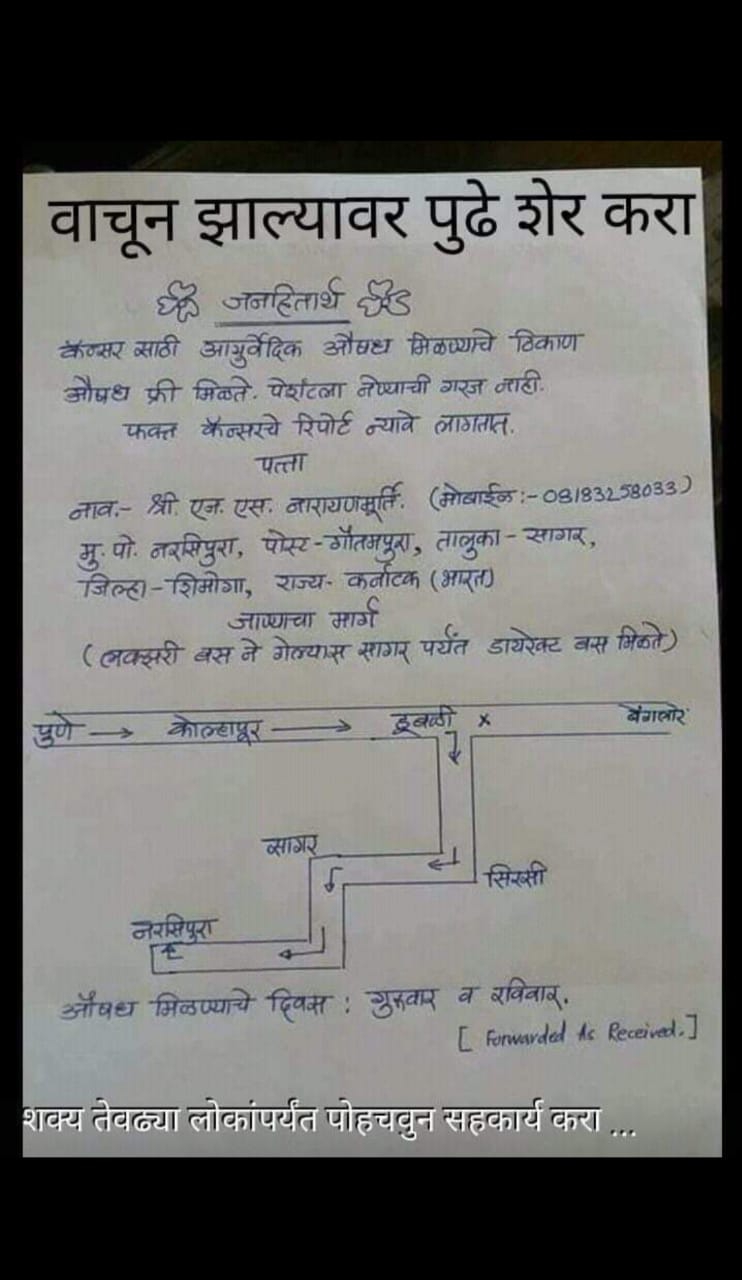 वाचून झाल्यावर पुढे शेर करा
जनहितार्थ
कॅन्सर साठी आयुर्वेदिक औषध मिळण्याचे ठिकाण
औषध फ्री मिळते. पेशंटला नेण्याची गरज नाही.
फक्त कॅन्सरचे रिपोर्ट न्यावे लागतात.
पत्ता
नाव:- श्री. एन. एस. नारायणमूर्ति. (मोबाईल :- 08183258033)
मु. पो. नरसिपुरा, पोस्ट - गौतमपुरा, तालुका - सागर,
जिल्हा - शिमोगा, राज्य- कर्नाटक (भारत)
जाण्याचा मार्ग
(लक्झरी बस ने गेल्यास सागर पर्यंत डायरेक्ट बस मिळते)
पुणे → कोल्हापूर → हुबळी x बेंगलोर
सागर
सिरसी
नरसिपुरा
औषध मिळण्याचे दिवस : गुरुवार व रविवार.
[ Forwarded As Received.]
शक्य तेवढ्या लोकांपर्यंत पोहचवुन सहकार्य करा ...